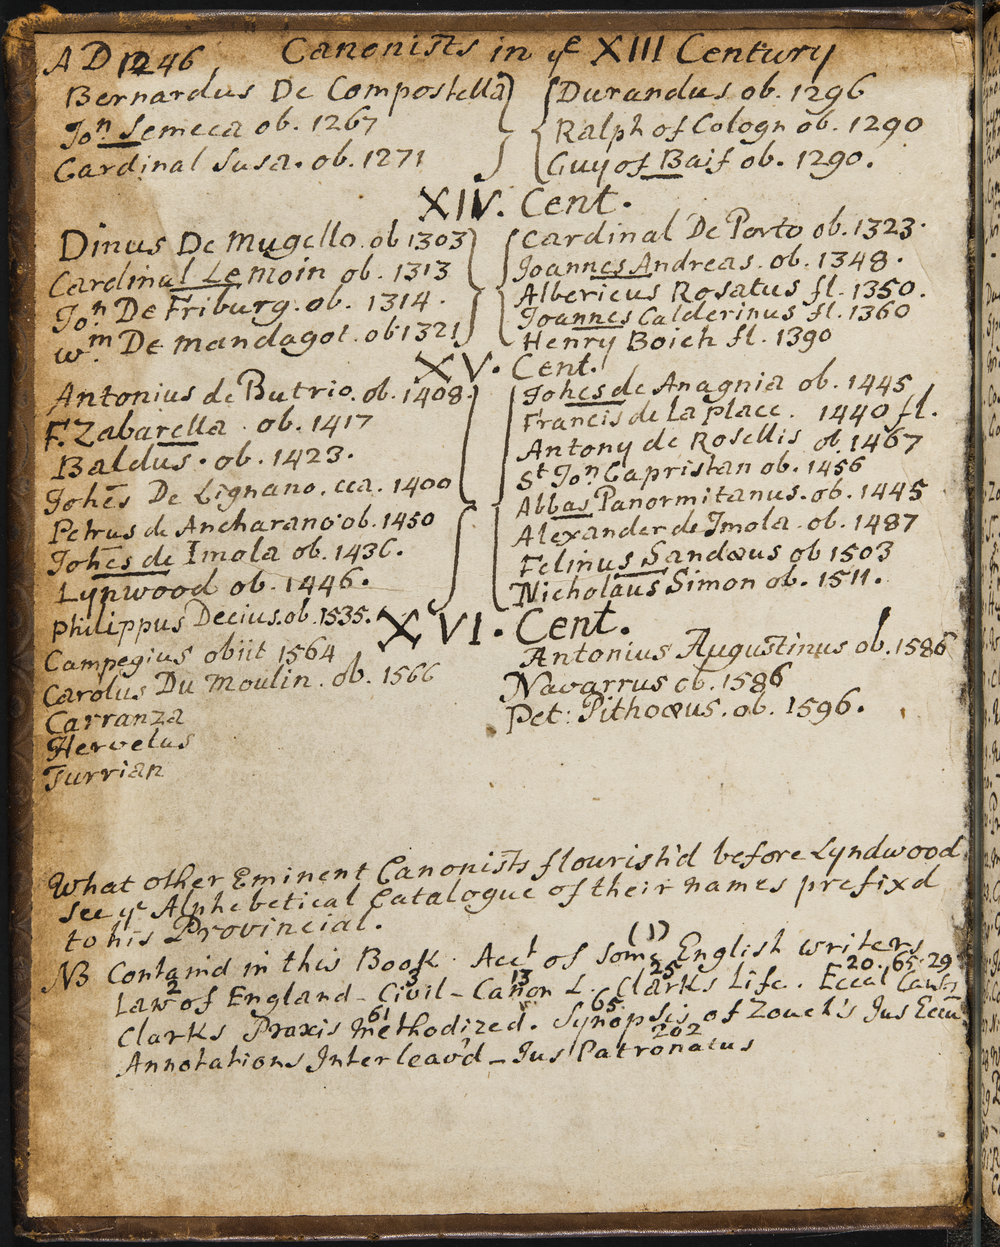 AD 1246 Canonists in yᵉ XIII Century
Bernardus De Compostella
Joⁿ Semeca ob. 1267
Cardinal Susa. ob. 1271
Durandus ob. 1296
Ralph of Cologn ob. 1290
Guy of Baif ob. 1290.
XIV. Cent.
Dinus De Mugello. ob 1303
Cardinal Le Moin ob. 1313
Joⁿ De Friburg. ob. 1314.
Wᵐ De Mandagot. ob 1321
Cardinal De Porto ob. 1323.
Joannes Andreas. ob. 1348.
Albericus Rosatus fl. 1350.
Joannes Calderinus fl. 1360
Henry Boich fl. 1390
XV. Cent.
Antonius de Butrio. ob. 1408.
F. Zabarella. ob. 1417
Baldus. ob. 1423.
Johēs De Lignano. cca. 1400
Petrus de Ancharano. ob. 1450
Johēs de Imola ob. 1436.
Lynwood ob. 1446.
Philippus Decius. ob. 1535.
Johes de Anagnia ob. 1445
Francis de la Place. 1440 fl.
Antony de Rosellis ob. 1467
Sᵗ Joⁿ Capristan ob. 1456
Abbas Panormitanus. ob. 1445
Alexander de Imola. ob. 1487
Felinus Sandæus ob 1503
Nicholaus Simon ob. 1511.
XVI. Cent.
Campegius obiit 1564
Carolus Du Moulin. ob. 1566
Carranza
Hervetus
Turrian
Antonius Augustinus ob. 1586
Navarrus ob. 1586
Pet: Pithoæus. ob. 1596.
What other Eminent Canonists flourish'd before Lyndwood
see yᵉ Alphebetical Catalogue of their names prefixd
to his Provincial.
(1)
NB Contain'd in this Book. Accᵗ of some English writers
2 3 13 25 20. 65. 29
Law of England - Civil - Canon L. Clarks Life. Eccal Laws
61 65
Clarks Praxis Methodized. Synopsis of Zouch's Jus Eccū
202
Annotations Interleav'd - Jus Patronatus